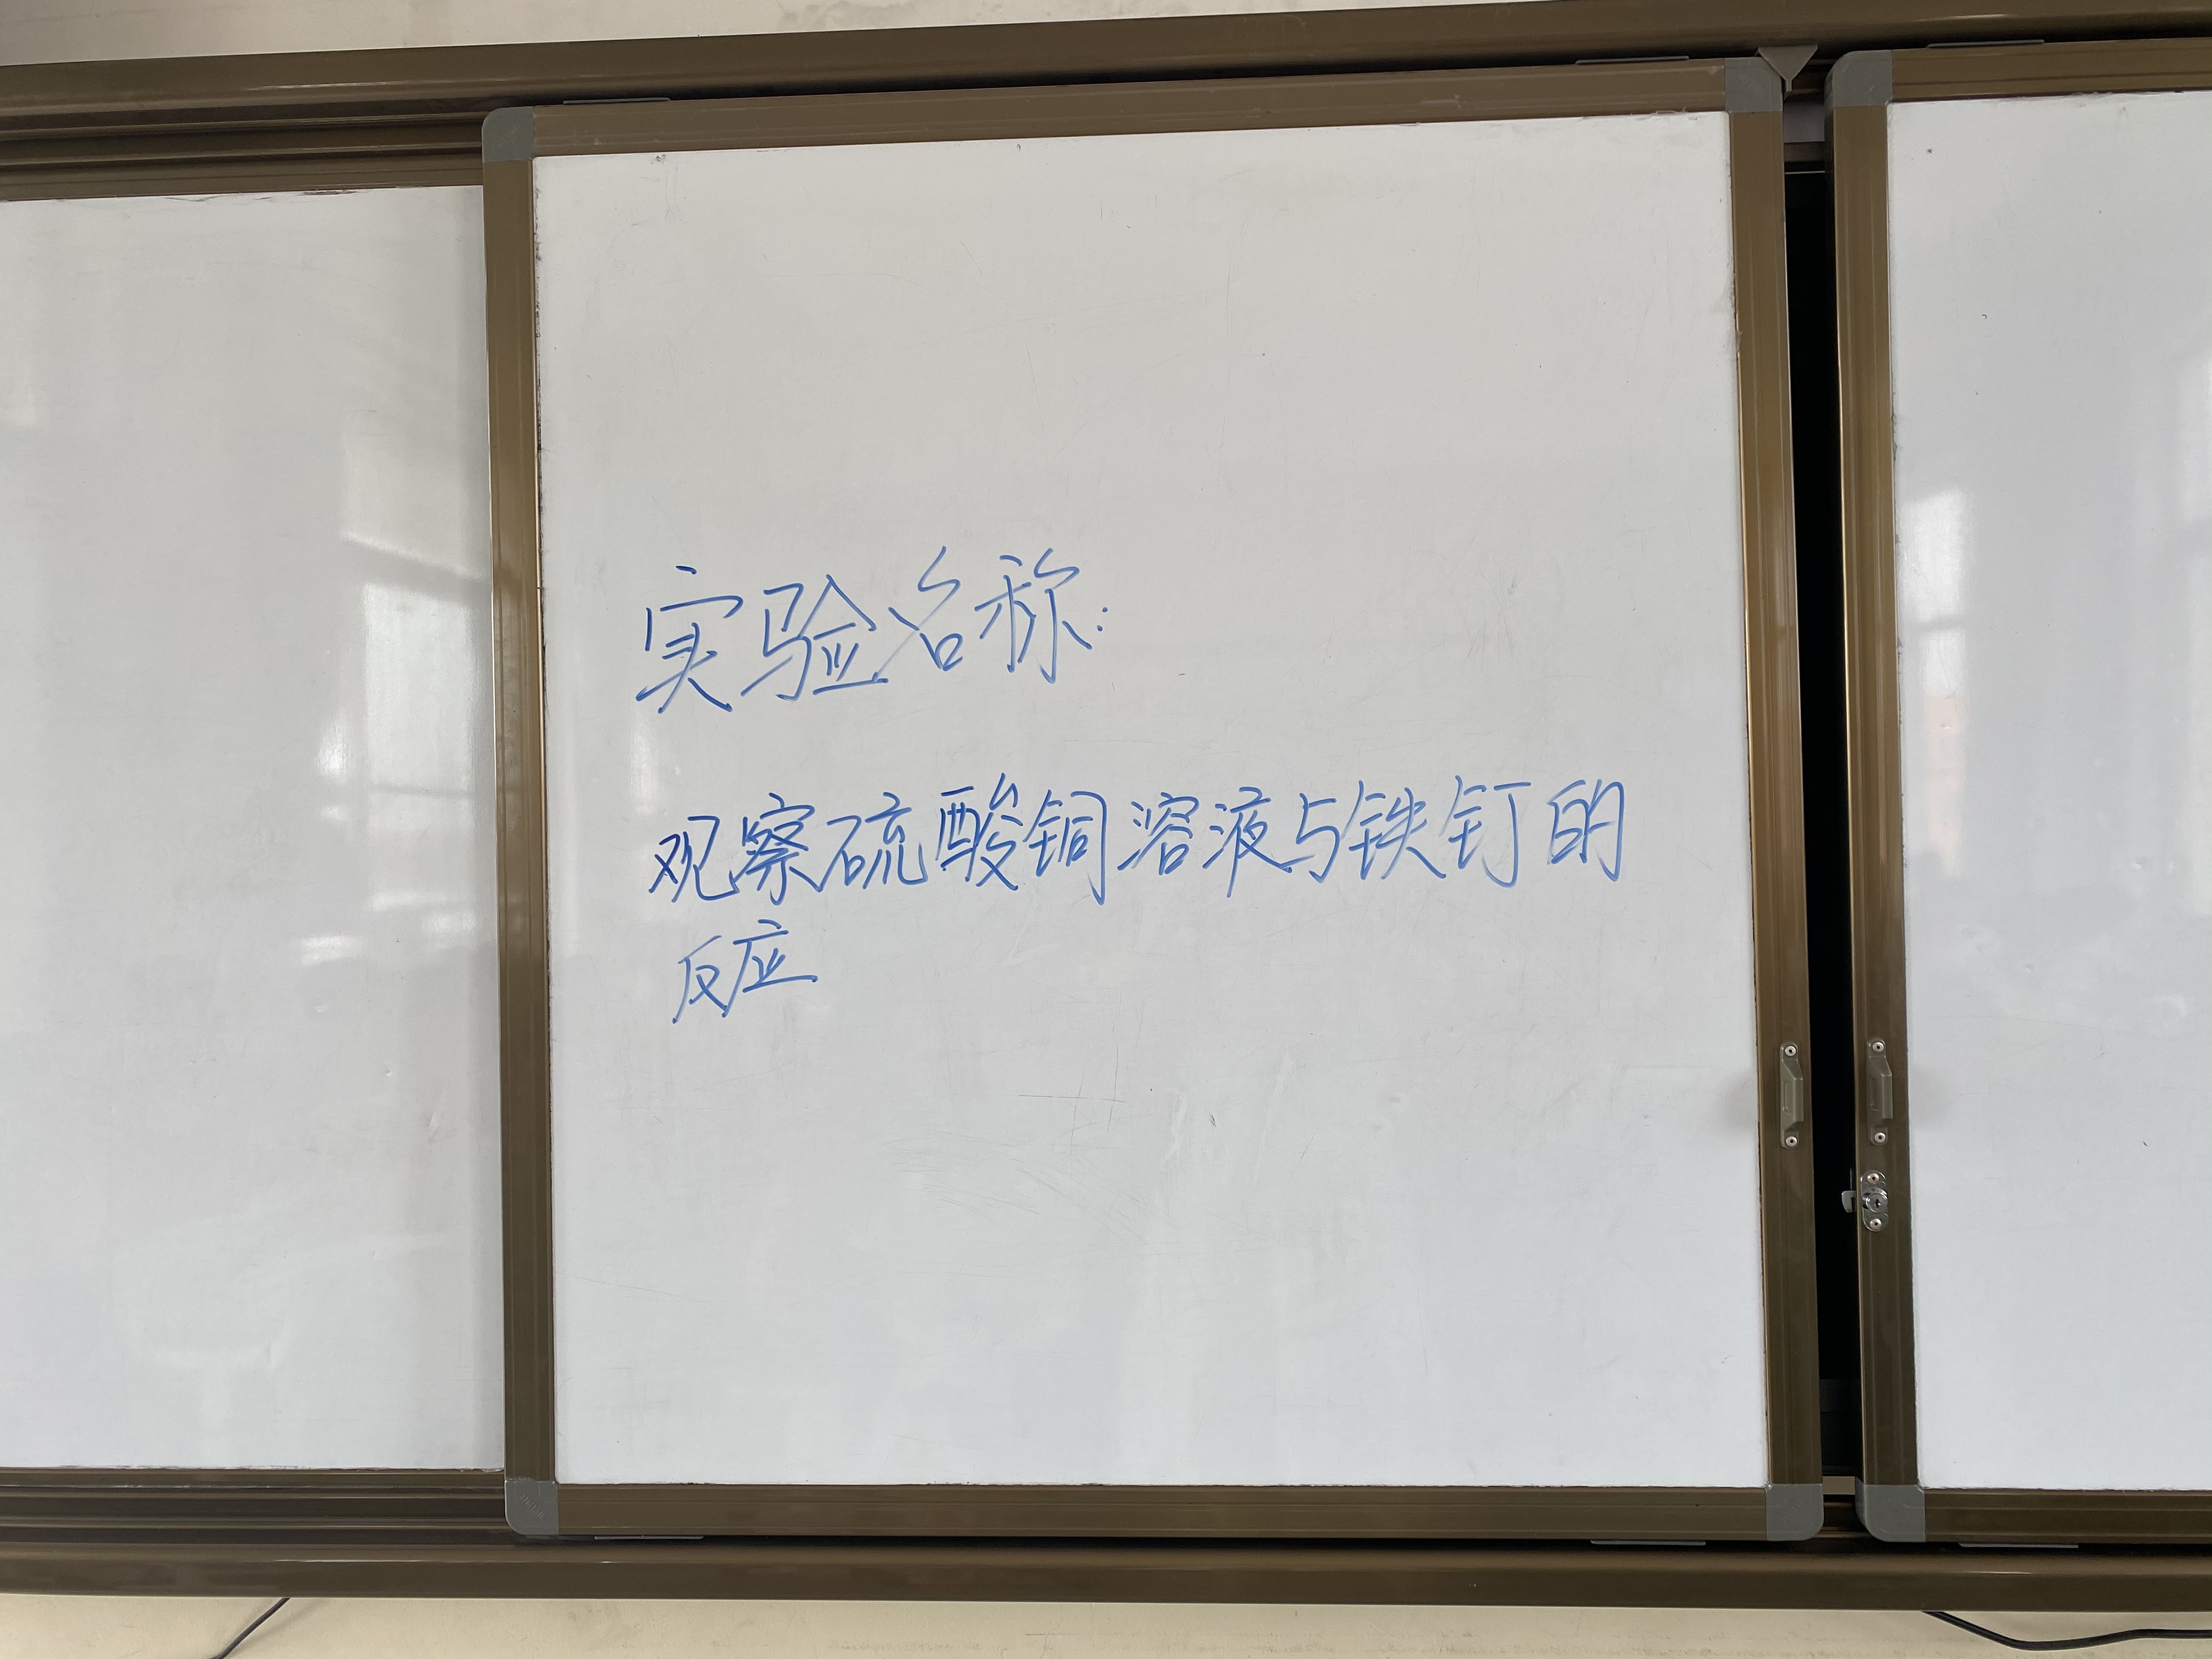 实验名称:
观察硫酸铜溶液与铁钉的
反应